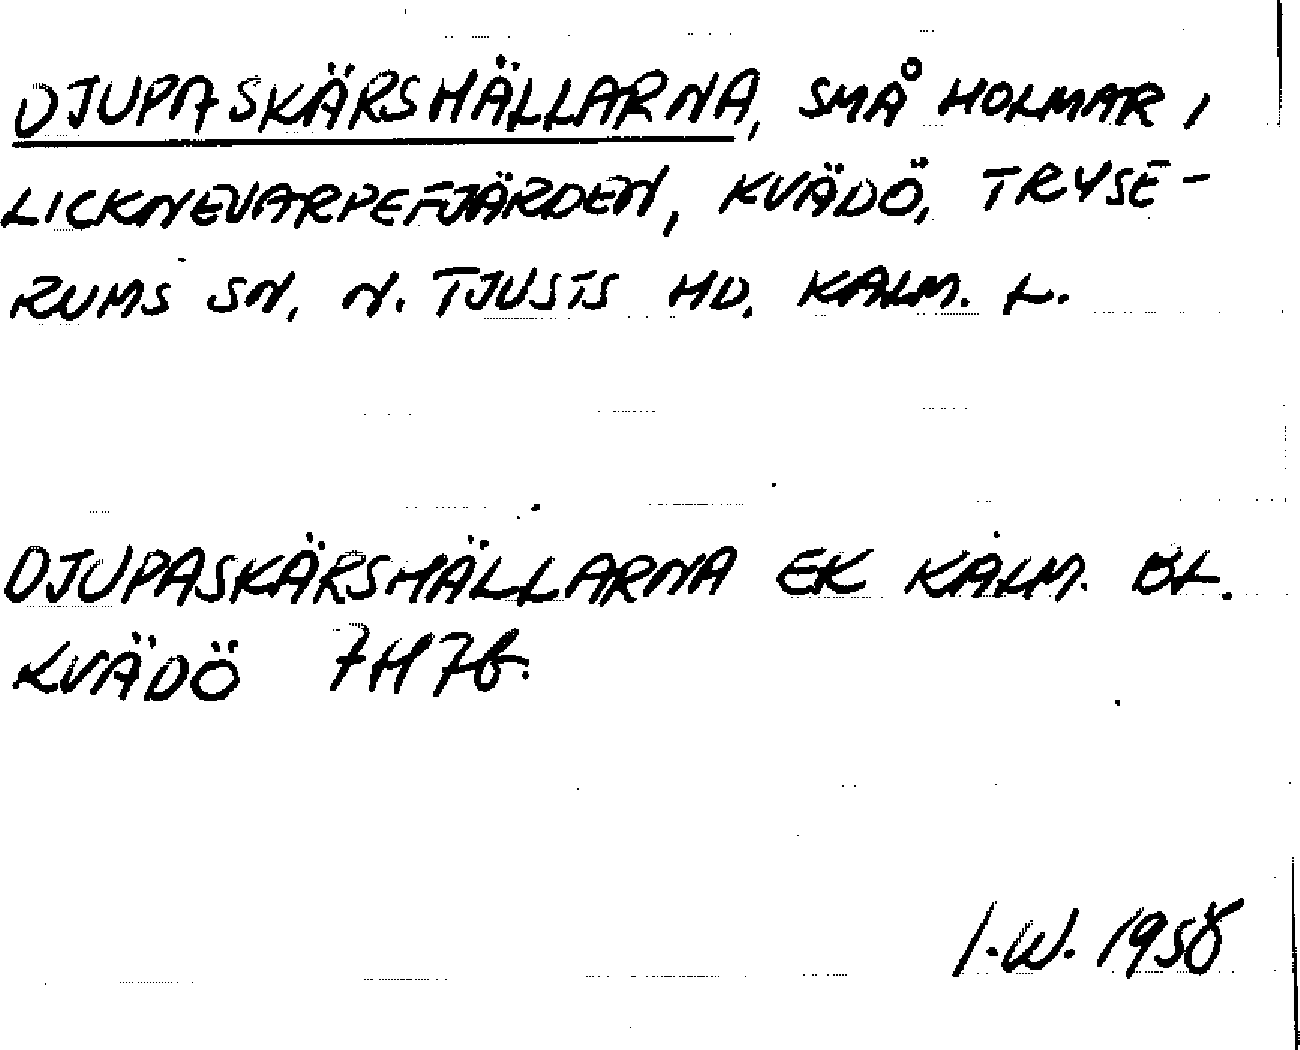 DJUPASKÄRSHÄLLARNA, SMÅ HOLMAR I
LICKNEVARPEFJÄRDEN, KVÄDÖ, TRYSE-
RUMS SN, N. TJUSTS HD. KALM. L.
DJUPASKÄRSHÄLLARNA EK KALM. ÖL.
KVÄDÖ 7H7b.
I.W. 1958